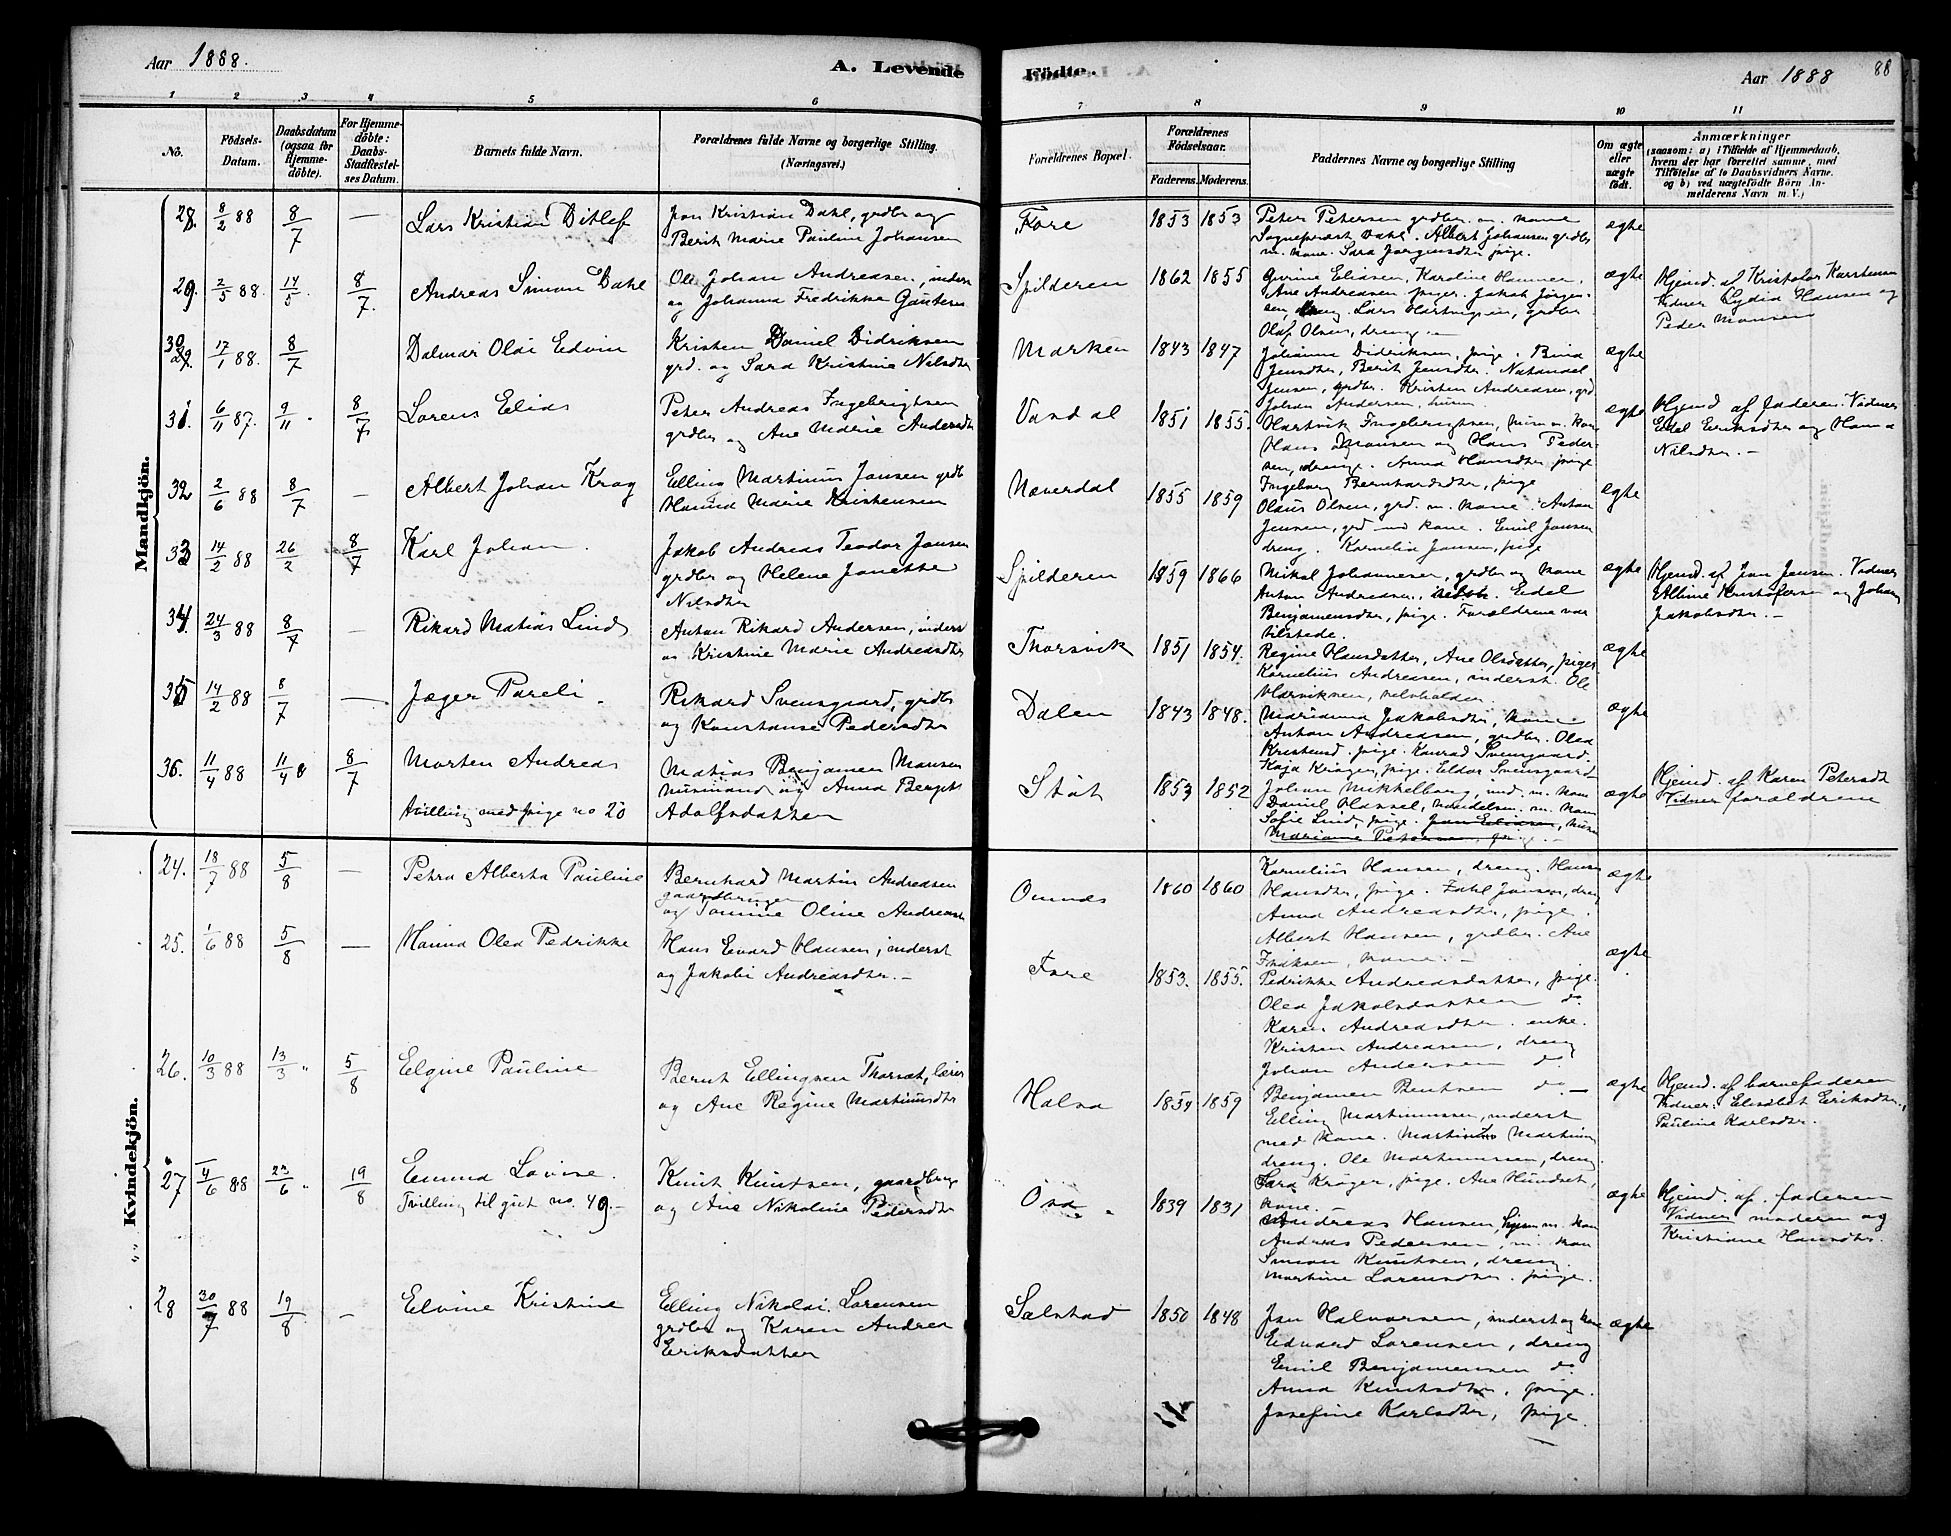 Aar 1888.
A. Levende Födte.
Aar 1888
88
1 2 3 4 5 6 7 8 9 10 11
No.
Födsels-Datum.
Daabsdatum (ogsaa for Hjemme-döbte).
For Hjemme-döbte: Daabs-Stadfæstel-ses Datum.
Barnets fulde Navn.
Forældrenes fulde Navne og borgerlige Stilling. (Næringsvei.)
Forældrenes Bopæl.
Forældrenes Födselsaar.
Faderens. Moderens.
Faddernes Navne og borgerlige Stilling
Om ægte eller uægte födt.
Anmærkninger
(saasom: a) i Tilfælde af Hjemmedaab, hvem der har forrettet samme, med Tilföielse af to Daabsvidners Navne, og b) ved uægtefödte Börn An-melderens Navn m. V.)
Mandkjön.
28. 8/2 88 8/7 — Lars Kristian Ditlef
Jan Kristian Dahl, grdbr og
Berit Marie Pauline Johansen
Fore 1853 1853
Peter Petersen grdbr. m. kone
Sogneprest Dahl. Albert Johansen grdbr
m. kone. Sara Jørgensdtr pige.
ægte
29. 2/5 88. 14/5. 8/7. Andreas Simon Dahl
Ole Johan Andreasen, inderst
og Johanna Fredrikke
Spilderen 1862 1855
Eliasen, Karoline
Ane Andreasen piger. Jakob Jørgen-
sen, dreng. Lars grdbr
Olaf Olsen, dreng.
ægte
Hjemd. af Kristofer Karstensen
Vidner Lydia Hansen og
Peder Monsen
30. 17/1 88. 8/7 Dalmar Olai Edvin
Kristen Daniel Didriksen
grd. og Sara Kristine Nilsdtr
Marken 1843 1847
Johanna Didriksen, pige.
Jensdtr, Berit Jensdtr. Natanael
Jensen, grdbr. Kristen Andreasen, grd
Johan Andersen,
ægte
31. 6/11 87. 9/11 8/7 Lorens Elias
Peter Andreas Ingebrigtsen
grdbr og Ane Marie Andersdtr
Vandal 1851 1855.
Hartvik Ingebrigtsen, m. kone
Hans Monsen og Hans Peder-
sen, drenge. Anna Hansdtr pige
ægte
Hjemd. af faderen. Vidner
Edel Eriksdtr og Hanna
Nilsdtr. —
32 2/6 88 8/7 — Albert Johan Krag
Elling Martinus Jansen grdb
Hanna Marie Kristensen
Næverdal 1855 1859
Ingeborg Bernhardsdtr, pige
Olaus Olsen, grd. m. kone. Anton
Jensen, grd med kone. Emil Jansen
dreng. Kornelia Jansen, pige
ægte
33 14/2 88 26/2 8/7 Karl Johan.
Jakob Andreas Teodor Jansen
grdbr og Helene Janette
Nilsdtr
Spilderen 1859 1866
Mikal Johannesen, grdbr og kone
Anton Andreasen, Edel
Benjamensdtr, pige. Forældrene var
tilstede.
ægte
Hjemd. af Jan Jensen. Vidner
Albine Kristofersen og Johan
Jakobsdtr. —
34. 24/3 88 8/7 — Rikard Matias Lind
Anton Rikard Andersen, inderst
og Kristine Marie Andreasdtr
Thorsvik 1851 1854.
Regine Hansdatter, Ane Olsdatter, piger
Kornelius Andreasen, inderst. Ole
ægte
35 14/2 88 8/7 — Jæger Pareli.
Rikard Svensgaard, grdbr
og Konstanse Pedersdtr
Dalen 1843 1848.
Marianna Jakobsdtr, kone.
Anton Andreasen, grdbr. Olea
Kristensd. pige. Konrad Svensgaard.
ægte
36. 11/4 88 11/4 8/7 Morten Andreas
Tvilling med pige no 20
Matias Benjamen Monsen
husmand og Anna Bergit
Adolfsdatter
Støt 1853 1852
Kaja Krøger, pige. Eldor Svensgaard
Johan Mikkelborg, ind. m. kone
Daniel Hansen, m. kone
Sofie Lind, pige. Jan Eliasen,
Marianne Petersen, pige. —
ægte
Hjemd. af Karen Petersdt
Vidner forældrene
Kvindekjön.
24. 18/7 88 5/8 — Petra Alberta Pauline
Bernhard Martin Andreasen
gaardbruger
og Tomine Oline Andreasdtr
Ornnes 1860 1860
Kornelius Hansen, dreng. Hansine
Hansdtr, pige. Jansen, dreng
Anna Andreasdtr, pige.
Albert Hansen, grdbr. Ane
kone. —
ægte
25. 1/6 88 5/8 — Hanna Olea Pedrikke
Hans Evard Hansen, inderst
og Jakobi Andreasdtr. —
Fore 1853. 1855.
Pedrikke Andreasdatter, pige.
Olea Jakobsdatter do.
Karen Andreasdtr. enke.
Kristen Andreasen, dreng
Johan Andersen do.
ægte
26. 10/3 88 13/3 5/8 Elgine Pauline
Bernt Ellingsen Thorsæt, lærer
og Ane Regine Martinusdtr
Halsa 1854 1859
Benjamen Bentsen do —
Elling Martinussen, inderst
med kone. Martinus Martinus
dreng. Ole Martinussen, dreng
ægte
Hjemd. af barnefaderen
Vidner: Elisabet Eriksdtr.,
Pauline Karlsdtr.
27 4/6 88 23/6 19/8 Emma Lovise.
Tvilling til gut no. 49. —
Knut Knutsen, gaardbrug
og Ane Nikoline Pedersdtr
1839 1831
Sara Krøger, pige. Ane
kone.
Andreas Hansen, m. kone
Andreas Pedersen, m. kone
Simon Knutsen, dreng.
Martine Lorensdtr. pige.
ægte
Hjemd. af. faderen
Vidner moderen og
Kristiane Hansdtr.
28 30/7 88 19/8 — Elvine Kristine
Elling Nikolai Lorensen
grdbr og Karen Andrea
Eriksdatter
Selstad 1850 1848
Jan Halvorsen, inderst og kone
Edvard Lorensen, dreng
Emil Benjamensen do
Anna Knutsdtr, pige.
Josefine Karlsdtr, pige.
ægte